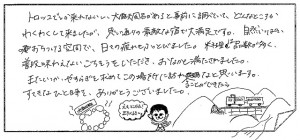 トロッコでしか来れないい、大自然の宿があると事前に調べていて、どんなところか
わくわくして来ましたが、思い通りの素敵なお宿で大満足です。自然いっぱいの
癒おちつける空間で、日々の疲れもなくなりました。料理も品数が多く、
普段味わえないごちそうをいただき、おなかも満たされました。
またいつか、やすらぎを求めてこの場所に訪れることができたらなと思います。
すてきなひと時を、ありがとうございました。